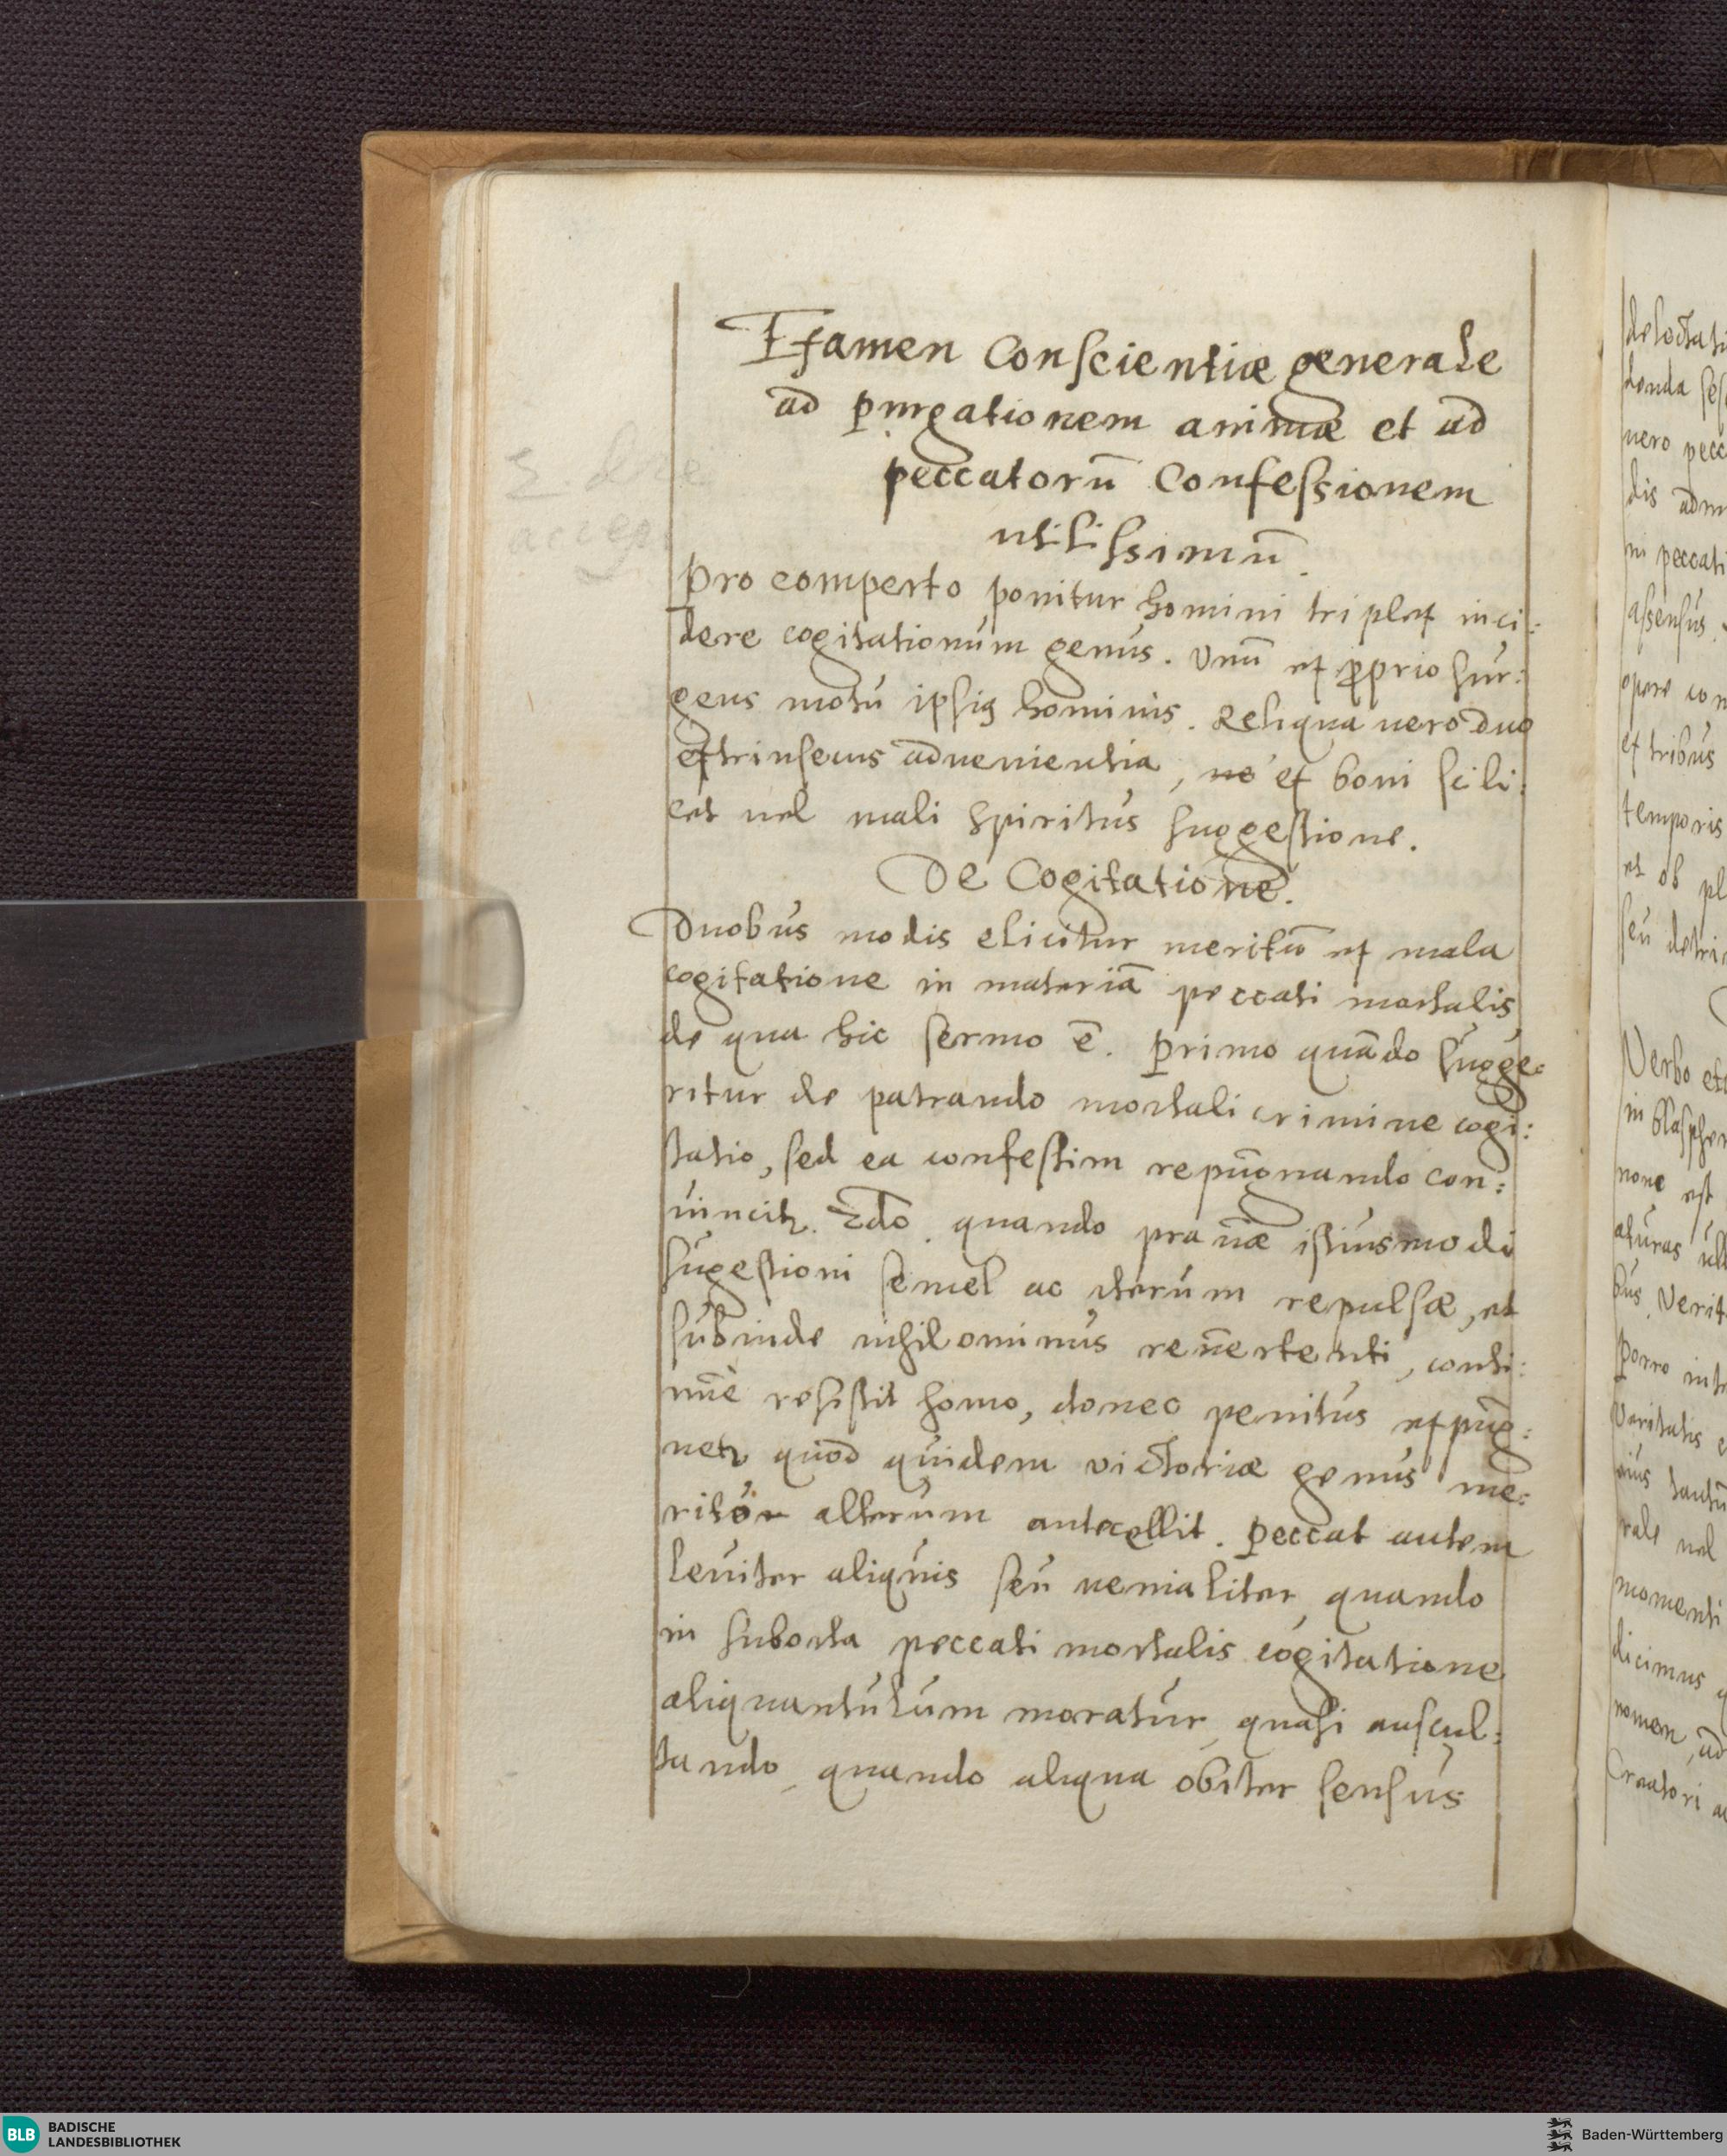 Examen Conscientiæ generale
ad purgationem animæ et ad
peccatorū Confessionem
utilissimū.
Pro comperto ponitur homini triplex inci:
dere cogitationum genus. Unū ex proprio sur:
gens motu ipsius hominis. Reliqua uero duo
extrinsecus aduenientia, ex boni scili:
cet uel mali spiritus suggestione.
De Cogitatione.
Duobus modis elicitur meritū ex mala
cogitatione in materiā peccati mortalis
de qua hic sermo ē. Primo quādo sugge:
ritur de patrando mortali crimine cogi:
tatio, sed ea confestim repugnando con:
uincitr. 2do. quando prauæ istiusmodi
sugestioni semel ac iterum repulsæ, et
subinde nihilominus reuertenti, conti:
nuè resistit homo, donec penitus expug:
netr quod quidem victoriæ genus me:
ritò alterum antecellit. Peccat autem
leuiter aliquis seu uenialiter, quando
in suborta peccati mortalis cogitatione
aliquantulum moratur, quasi auscul:
tando, quando aliqua obiter sensus
delectati
uero pecc
dis adm
ni peccati
assensus
opere con
ex tribus
temporis
et ob pl
seu detri
Verbo
in blasphe
est
Verit
Porro
Veritatis
uel
momenti
dicimus q
nomen, ad
Creatori
BLB BADISCHE
LANDESBIBLIOTHEK
Baden-Württemberg